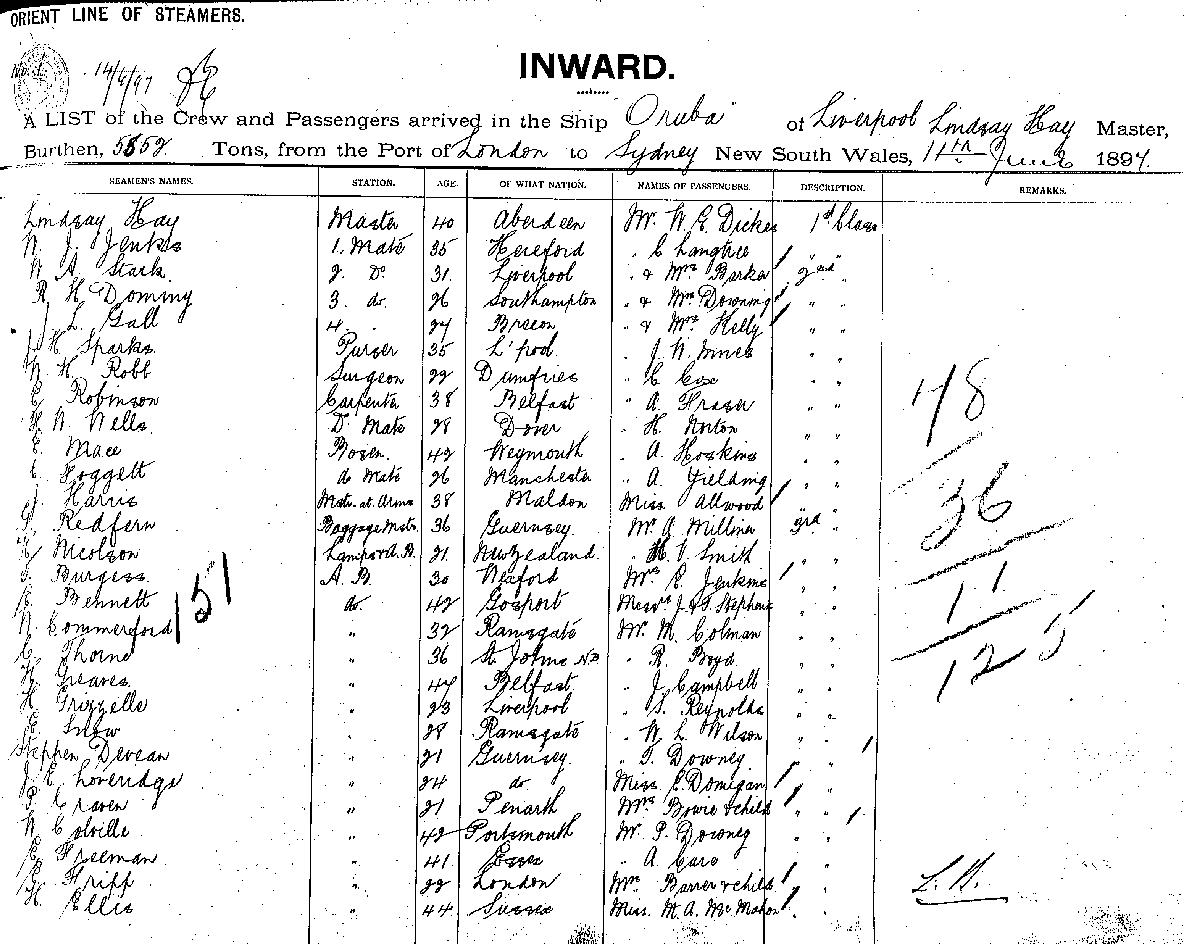 ORIENT LINE OF STEAMERS.
14/6/97
INWARD.
A LIST of the Crew and Passengers arrived in the Ship Oruba of Liverpool Lindsay Hay Master,
Burthen, 5852 Tons, from the Port of London to Sydney New South Wales, 11th June 1897.
SEAMEN'S NAMES. STATION. AGE. OF WHAT NATION. NAMES OF PASSENGERS. DESCRIPTION. REMARKS.
Lindsay Hay Master 40 Aberdeen Mr. W. E. Dickes 1st Class
N. J. Jenkes 1. Mate 35 Hereford " C Langtree " "
W A. Stark 2. Do. 31 Liverpool " & Mrs Barker 2nd "
R H. Doming 3. do. 26 Southampton " & Mrs Downing " "
J L. Gall 4. " 27 Brecon " & Mrs Helly " "
J H Sparks Purser 35 L'pool " J. W. Innes " "
W H. Robb Surgeon 22 Dumfries " C Cox " "
E Robinson Carpenter 38 Belfast " A Fraser " "
H. W. Wells Do. Mate 28 Dover " H. Norton " "
E. Mace Bosen. 42 Weymouth " A. Hoskins " "
C Hoggett do Mate 26 Manchester " A. Yielding " "
J. Harris Mstr. at Arms 38 Maldon Miss Allwood " "
Redfern Baggage Mstr. 36 Guernsey Mr A. Milliner 3rd "
Nicolson Lamps & A.B. 21 New Zealand H. V. Smith " "
Burgess A. B. 30 Wexford Mrs E. Jenkins " "
E. Bennett do. 42 Gosport Messrs J. & T. Stephens " "
N Commerford " 32 Ramsgate Mr. M. Colman " "
C Thorne " 36 St Johns N.B. " R. Boyd " "
H Greaves " 47 Belfast " J. Campbell " "
H. Grizzelle " 23 Liverpool " S. Reynolds " "
E. Snow " 28 Ramsgate " W. L. Wilson " "
Stephen Devean " 21 Guernsey " T. Downey "
J. E. Loveridge " 24 do Miss E. Domigan " "
P. Craven " 21 Penarth Mrs Bowie & child " "
W. Colville " 42 Portsmouth Mr P. Downey " "
E. Freeman " 41 Essex " A. Caro " "
E. Fripp " 22 London Mrs Barrer & child " "
H. Ellis " 44 Sussex Miss. M. A. McMahon "
151
48
36
11
125
L.H.